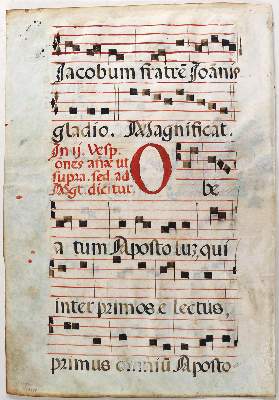 Jacobum fratrē Joānis
gladio. Magnificat.
In ij. Vesp
ones anæ ut
supra. sed ad
Mgt dicitur.
O be
a tum Apostolum, qui
inter primos e lectus,
primus omniū Aposto